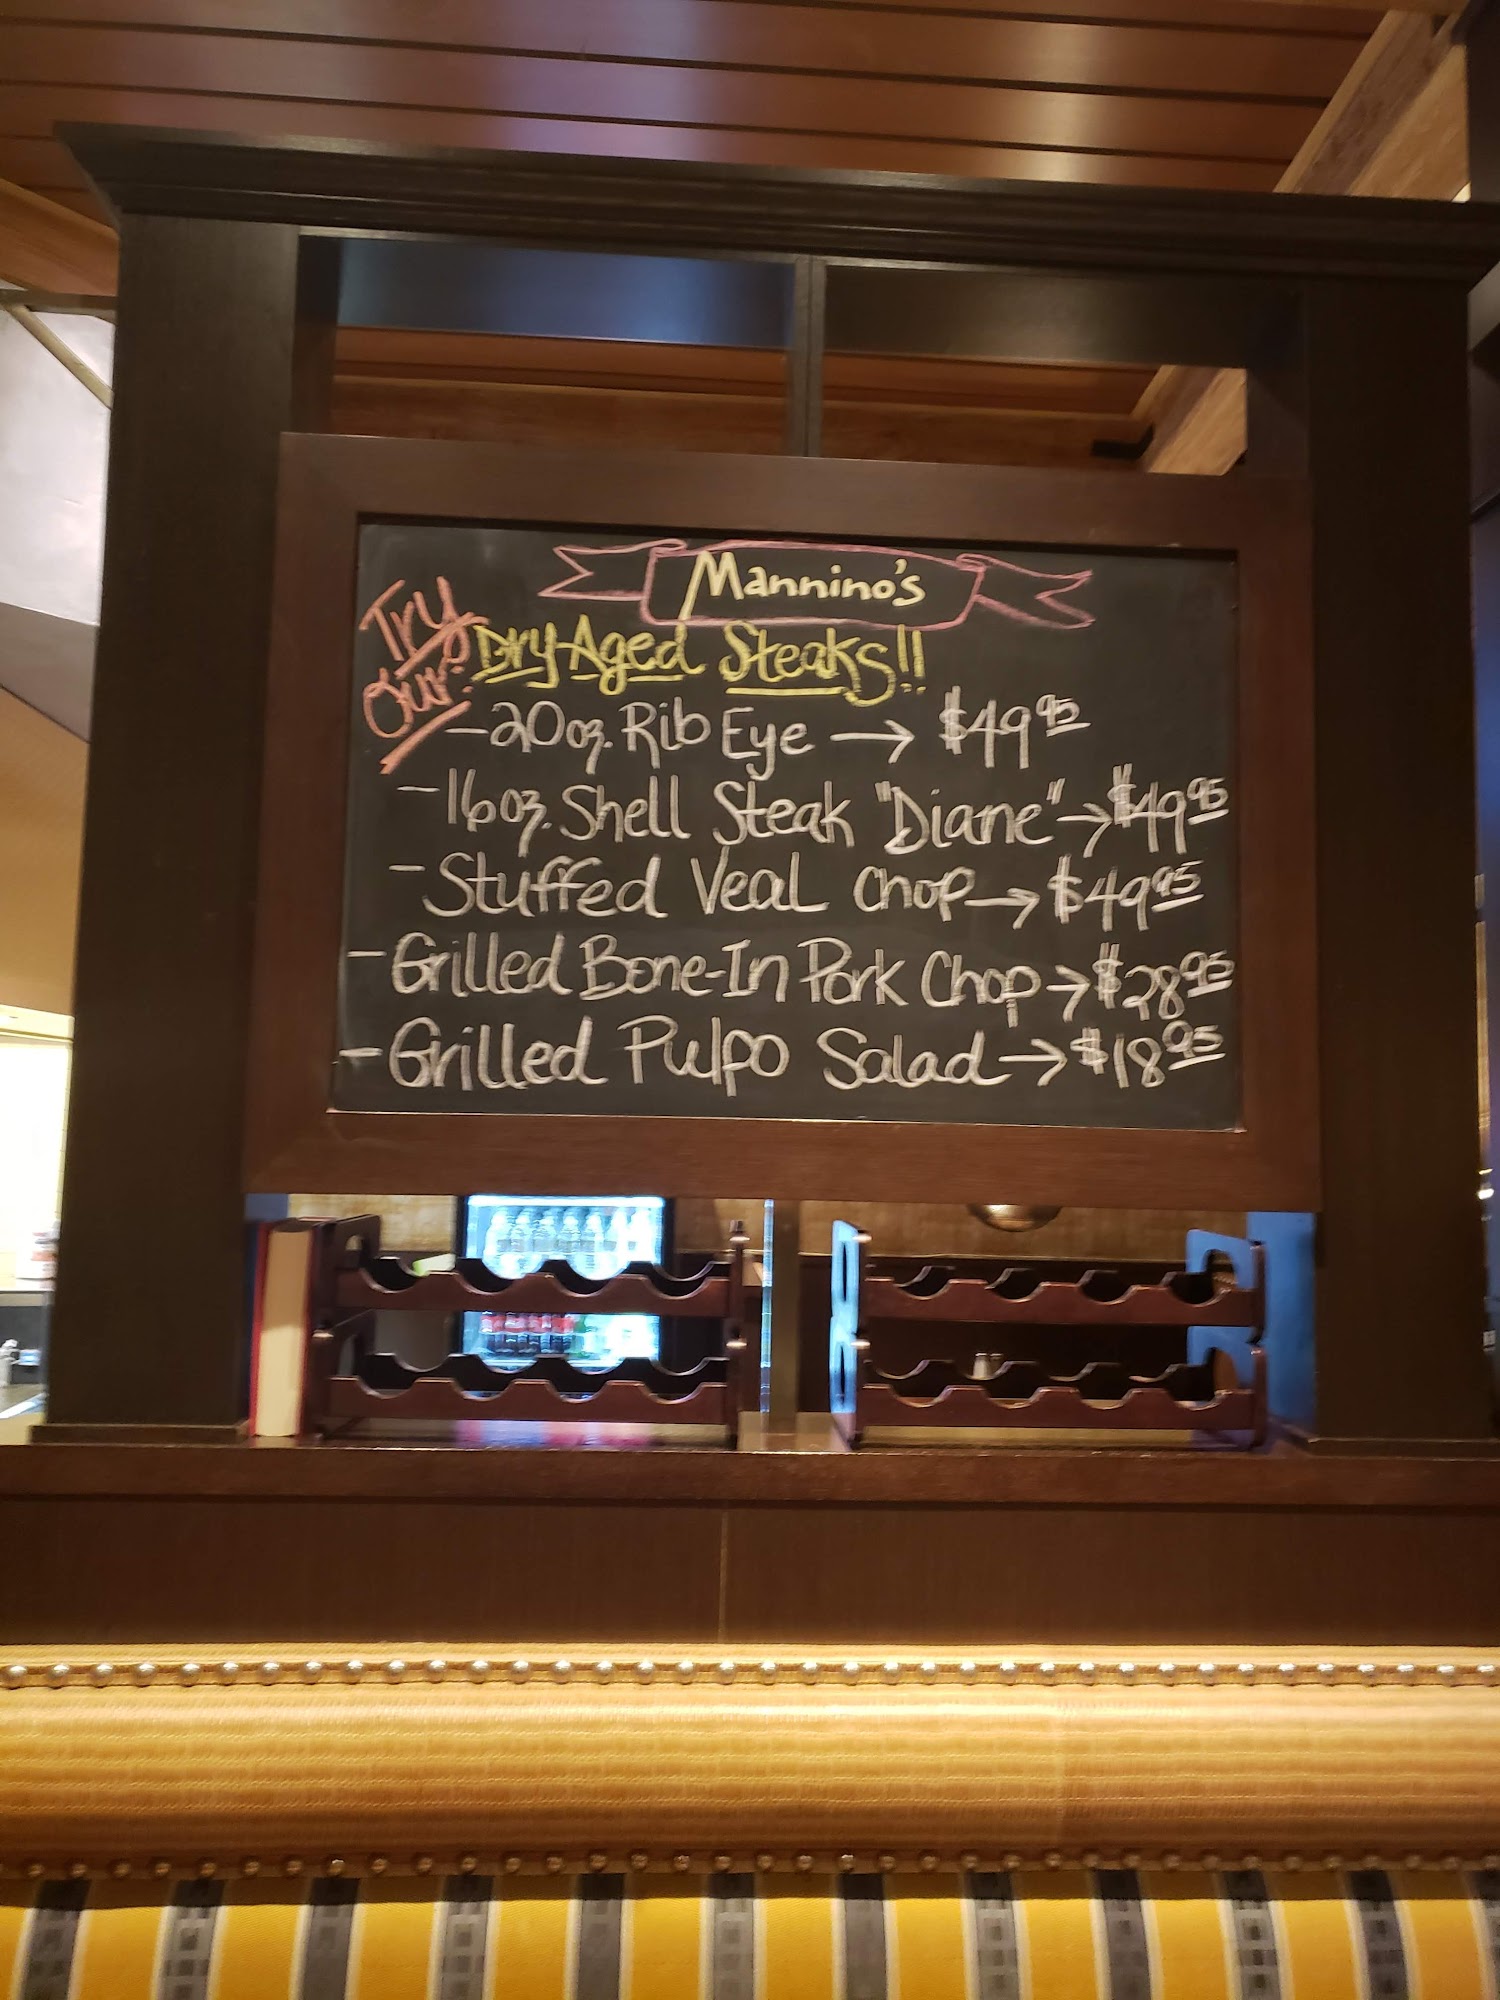 Mannino's
Try
Our:
Dry-Aged Steaks!!
-20oz. Rib Eye → $49.95
-16oz. Shell Steak "Diane" → $49.95
-Stuffed Veal Chop → $49.95
-Grilled Bone-In Pork Chop → $28.95
-Grilled Pulpo Salad → $18.95